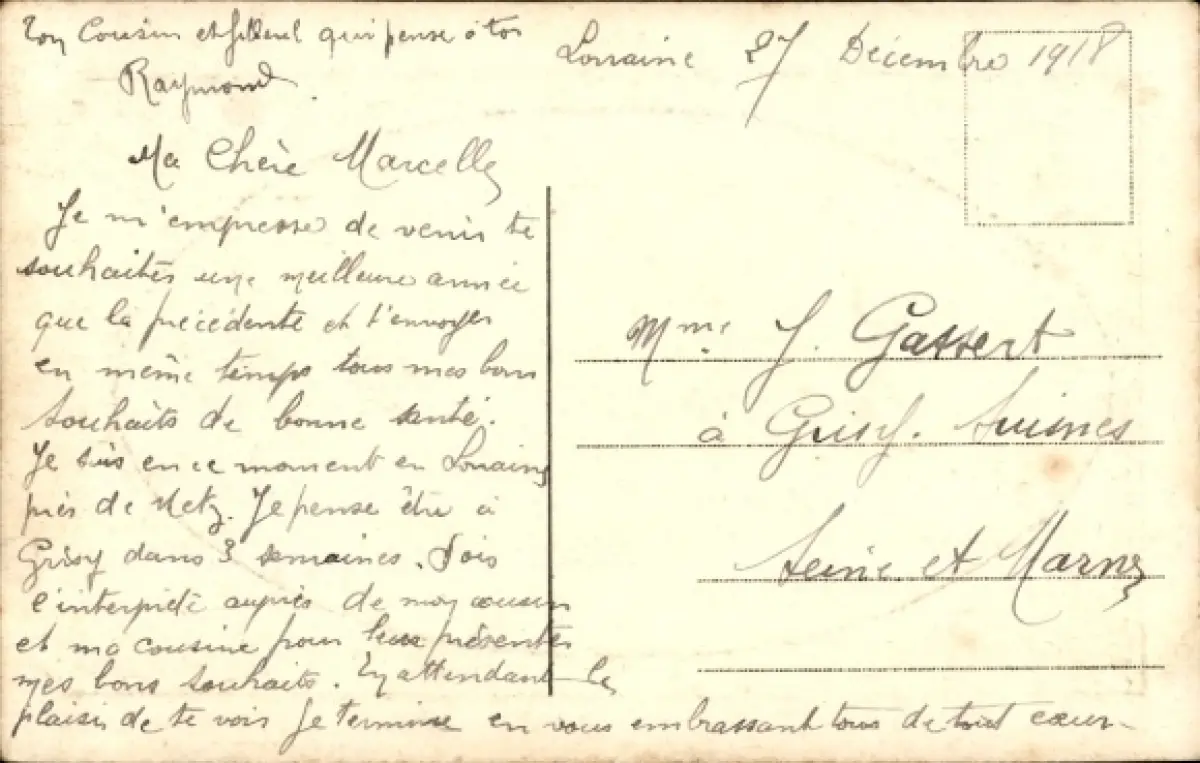 Lorraine 27 Décembre 1918
Ma Chère Marcelle
Je m'empresse de venir te
souhaiter une meilleure année
que la précédente et t'envoyer
en même temps tous mes bons
souhaits de bonne santé.
Je suis en ce moment en Lorraine
près de Metz. Je pense être à
Grisy dans 3 semaines. Sois
l'interprète auprès de mon cousin
et ma cousine pour leur présenter
mes bons souhaits. En attendant le
plaisir de te voir je termine en vous embrassant tous de tout cœur
Ton Cousin et filleul qui pense à toi
Raymond.
Mme J. Gassert
à Grisy. Suisnes
Seine et Marne